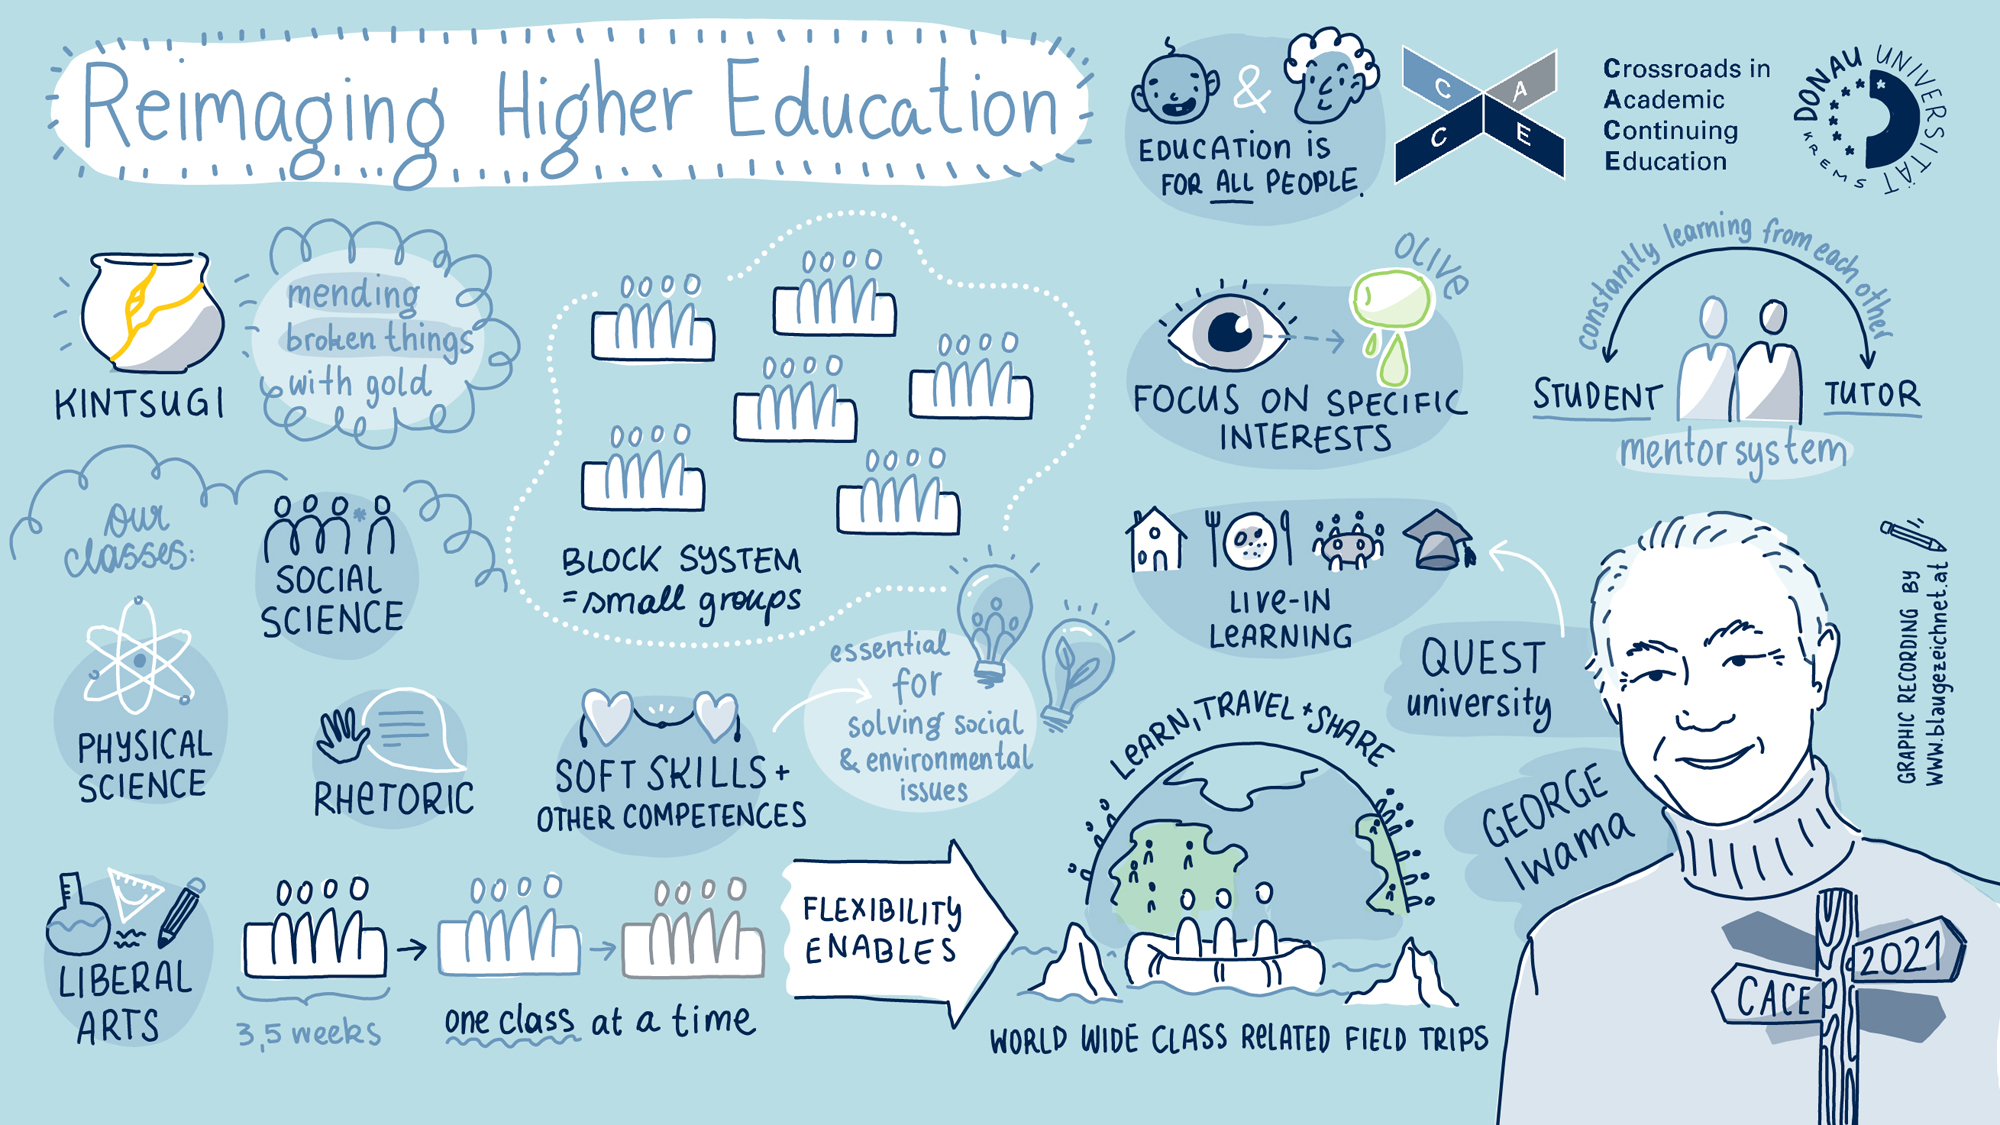 Reimaging Higher Education
&
EDUCATION IS
FOR ALL PEOPLE.
C A
C E
Crossroads in
Academic
Continuing
Education
DONAU UNIVERSITÄT
KREMS
KINTSUGI
mending
broken things
with gold
BLOCK SYSTEM
= small groups
OLIVE
FOCUS ON SPECIFIC
INTERESTS
constantly learning from each other
STUDENT
TUTOR
mentor system
our
classes:
SOCIAL
SCIENCE
PHYSICAL
SCIENCE
RHETORIC
SOFT SKILLS +
OTHER COMPETENCES
essential
for
solving social
& environmental
issues
LIVE-IN
LEARNING
QUEST
university
GEORGE
Iwama
GRAPHIC RECORDING BY
www.blaugezeichnet.at
LIBERAL
ARTS
3,5 weeks
one class at a time
FLEXIBILITY
ENABLES
LEARN, TRAVEL + SHARE
WORLD WIDE CLASS RELATED FIELD TRIPS
2021
CACE